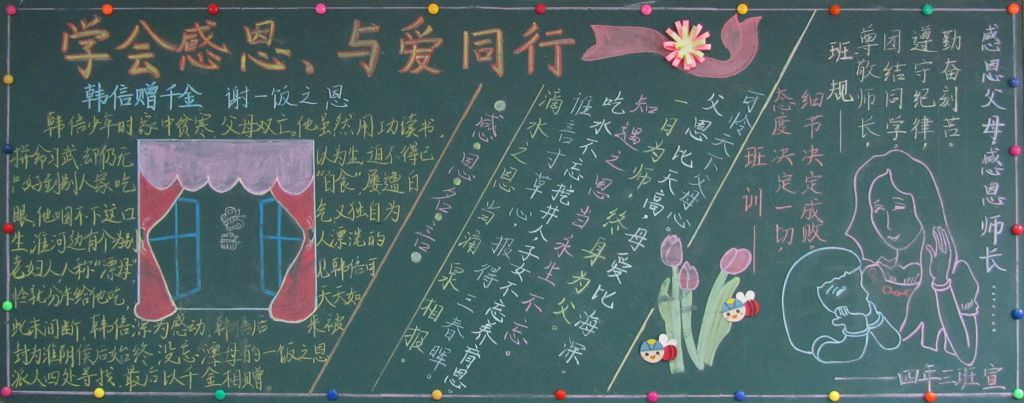 学会感恩、与爱同行
韩信赠千金 谢一饭之恩
韩信少年时家中贫寒,父母双亡,他虽然用功读书,
拼命习武,却仍无 以为生,迫不得已
只好到别人家吃 "白食",屡遭白
眼,他咽不下这口 气,又独自为
生,淮河边有个为 人漂洗的
老妇人人称"漂母" 见韩信可
怜就分 给他吃, 天天如
此未间断,韩信深为感动,韩信后 来被
封为淮阴侯后始终没忘漂母的一饭之恩,
派人四处寻找,最后以千金相赠。
感·恩·名·言
可怜天下父母心。
父恩比天高,母爱比海深。
一日为师,终身为父。
知遇之恩当永生不忘。
吃水不忘挖井人子女不忘养育恩。
谁言寸草心,报得三春晖。
滴水之恩当涌泉相报。
感恩父母感恩师长……
勤奋刻苦。
遵守纪律,
团结同学,
尊敬师长,
班规——
细节决定成败。
态度决定一切
——班训——
——四年三班宣